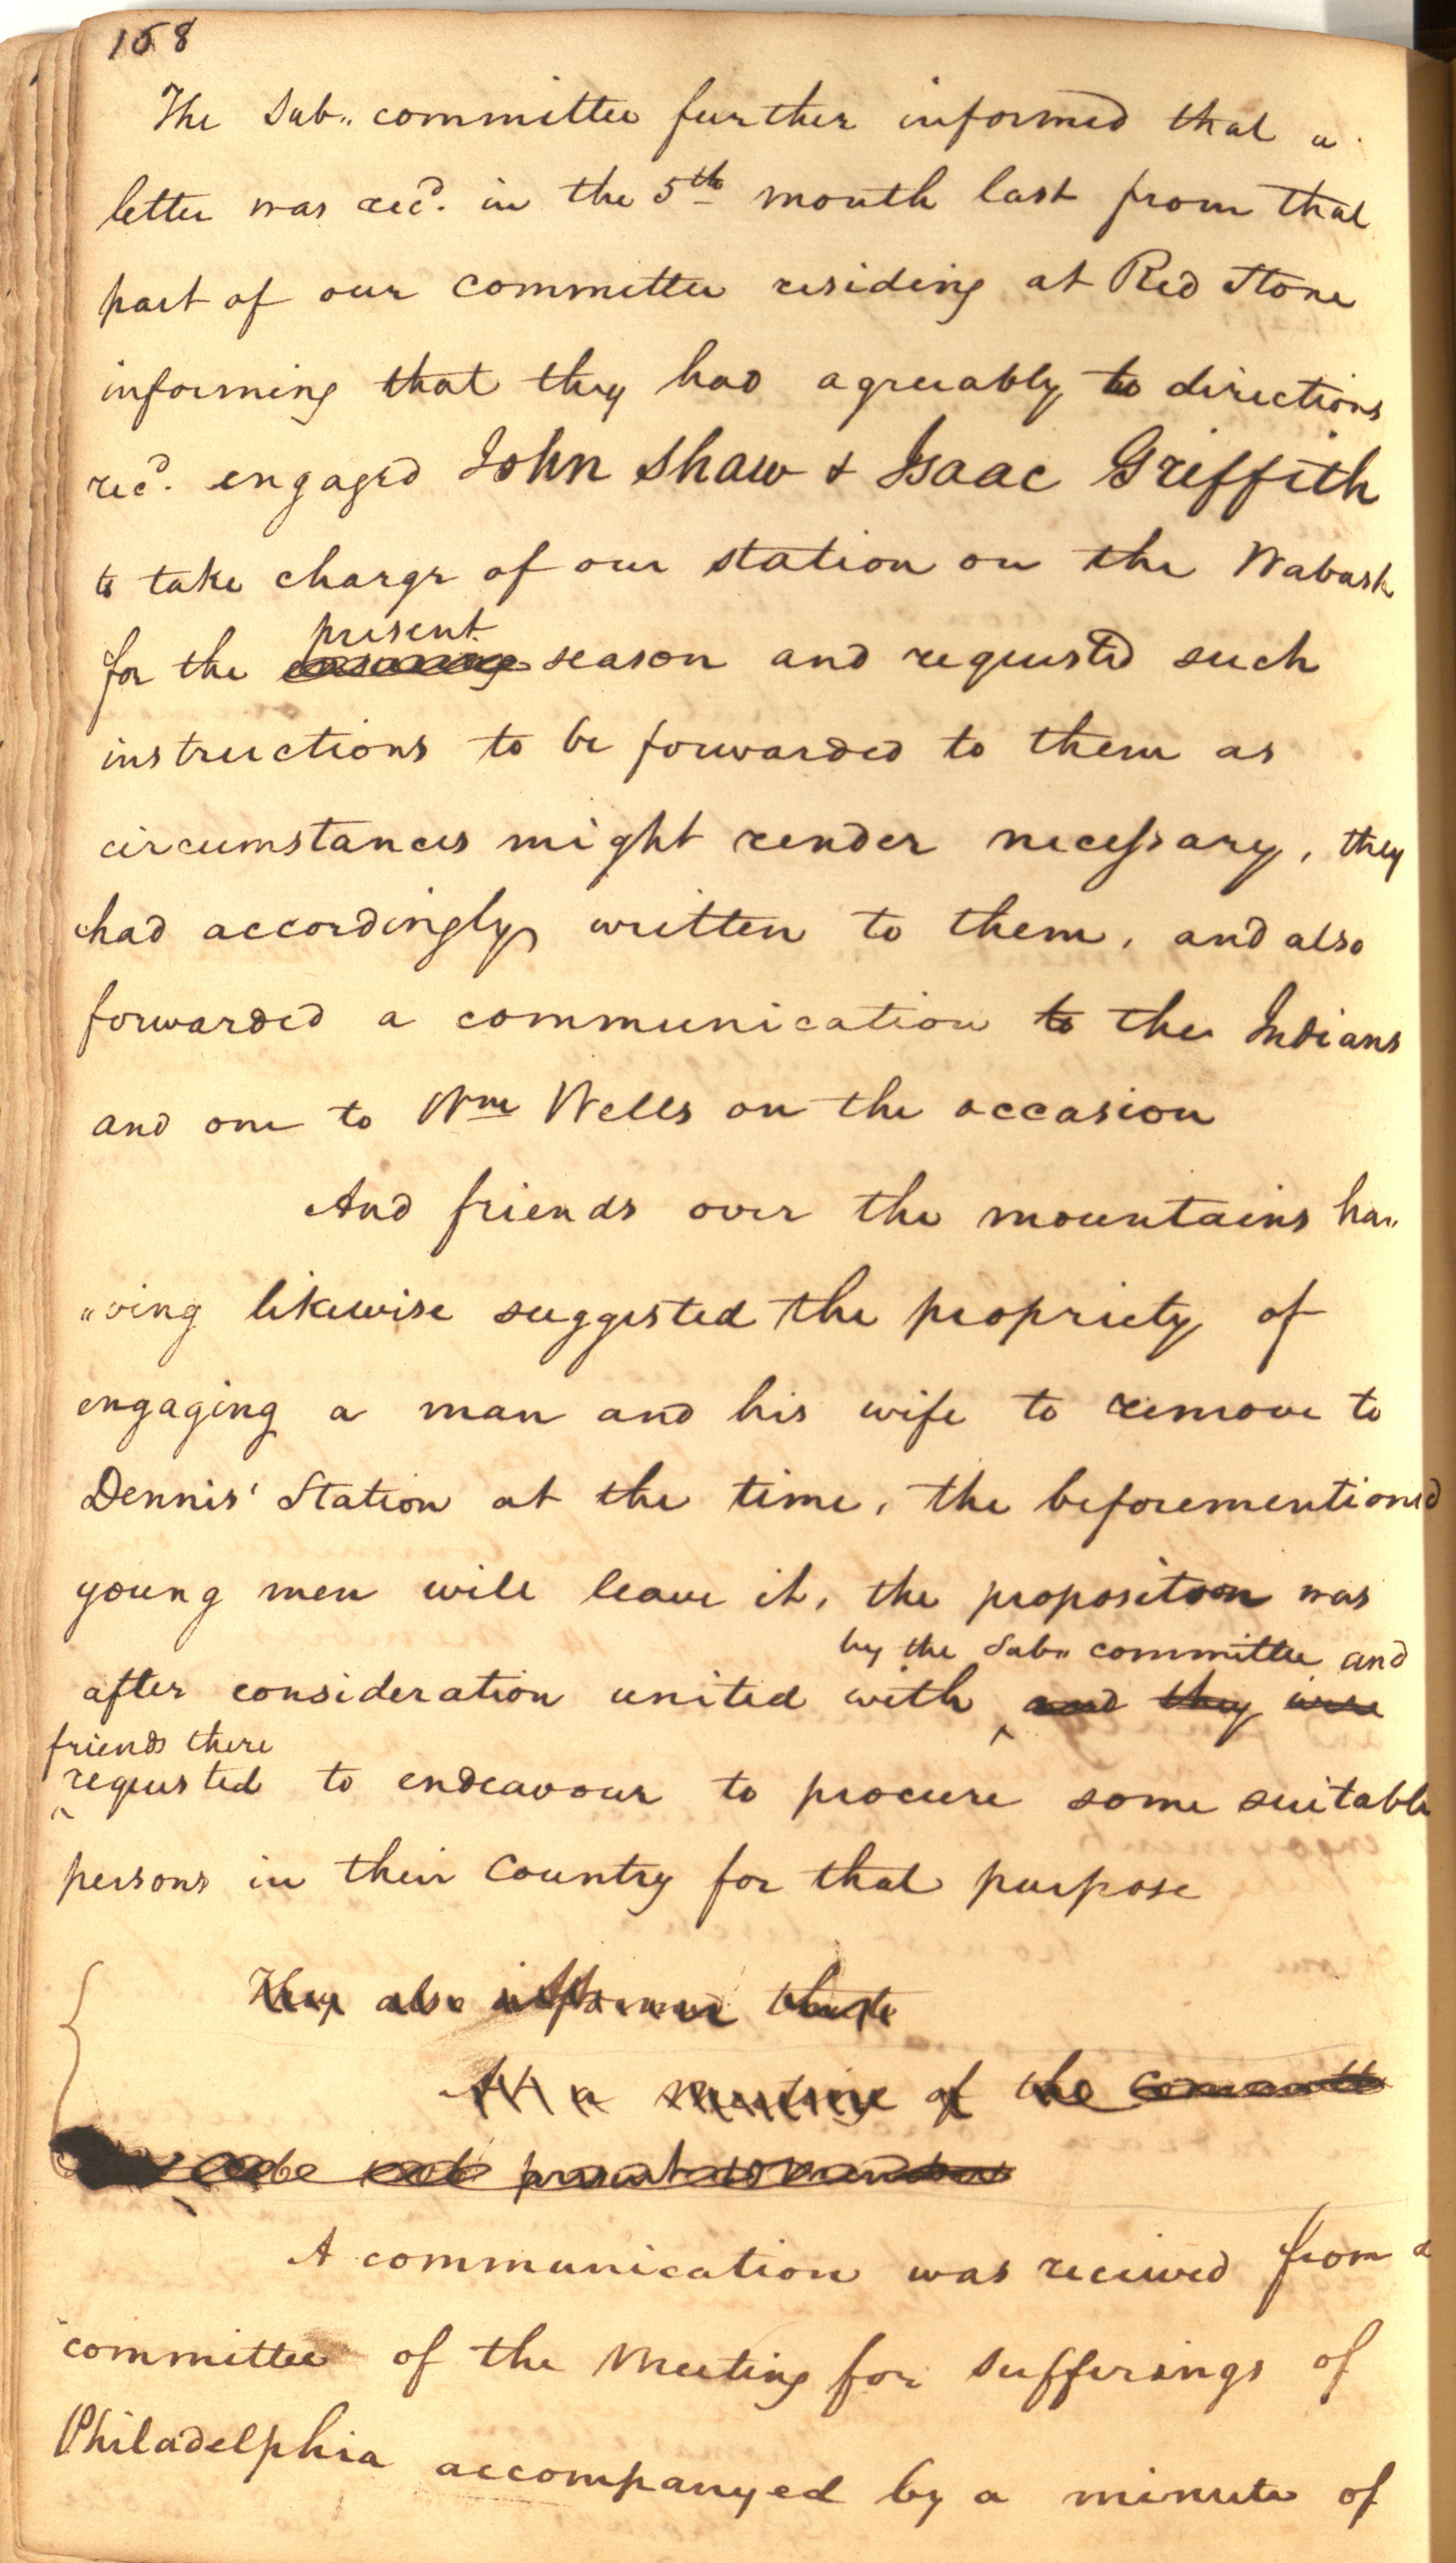 158
The Sub,, committee further informed that a
letter was recd. in the 5th month last from that
part of our committee residing at Red Stone
informing that they had agreeably to directions
recd. engaged John Shaw & Isaac Griffith
to take charge of our station on the Wabash
present
for the ensuing season and requested such
instructions to be forwarded to them as
circumstances might render necessary, they
had accordingly written to them, and also
forwarded a communication to the Indians
and one to Wm Wells on the occasion
And friends over the mountains ha,,
,,ving likewise suggested the propriety of
engaging a man and his wife to remove to
Dennis' Station at the time, the beforementioned
young men will leave it, the proposition was
by the Sub,, committee and
after consideration united with ^ and they were
friends there
^requested to endeavour to procure some suitable
persons in their Country for that purpose
They also inform that
At a meeting of the Committe
present
A communication was received from a
committee of the Meeting for sufferings of
Philadelphia accompanyed by a minute of